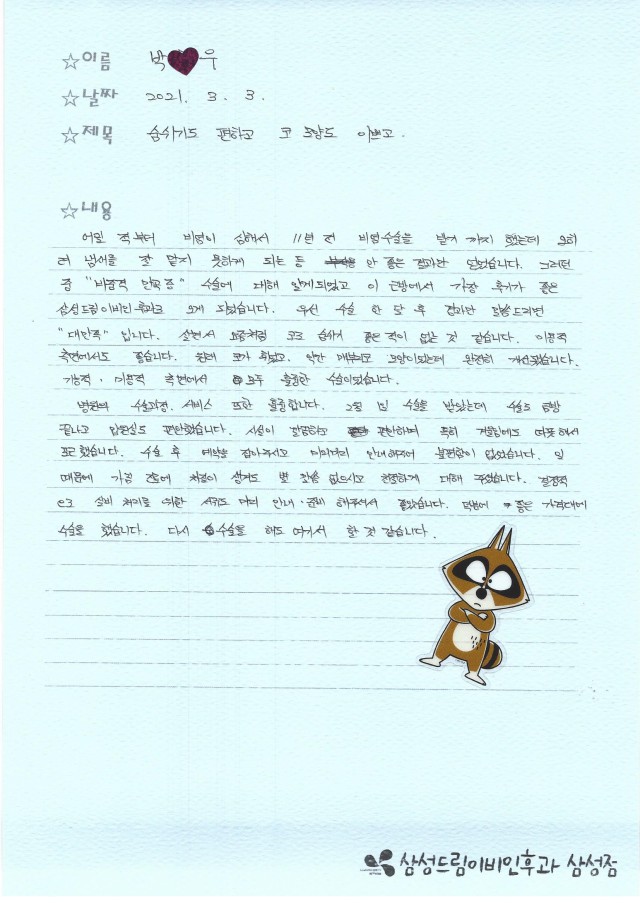 ☆이름 박♥우
☆날짜 2021. 3. 3.
☆제목 숨쉬기도 편하고 코 모양도 이쁘고.
☆내용
어릴 적부터 비염이 심해서 11년 전 비염수술을 받기 까지 했는데 오히
려 냄새를 잘 맡지 못하게 되는 등 안 좋은 결과만 얻었습니다. 그러던
중 "비중격 만곡증" 수술에 대해 알게되었고 이 근방에서 가장 후기가 좋은
삼성드림이비인후과로 오게 되었습니다. 우선 수술 한 달 후 결과만 말씀드리면
"대만족" 입니다. 살면서 요즘처럼 코로 숨쉬기 좋은 적이 없는 것 같습니다. 미용적
측면에서도 좋습니다. 원래 코가 휘었고, 약간 매부리코 모양이었는데 완전히 개선됐습니다.
기능적·미용적 측면에서 모두 훌륭한 수술이었습니다.
병원의 수술과정, 서비스 또한 훌륭합니다. 2월 1일 수술을 받았는데 수술도 금방
끝나고 입원실도 편안했습니다. 시설이 깔끔하고 편안하며 특히 겨울임에도 따뜻해서
포근했습니다. 수술 후 예약을 잡아주시고 미리미리 안내해주어 불편함이 없었습니다. 일
때문에 가끔 진료에 차질이 생겨도 별 말씀 없으시고 친절하게 대해 주셨습니다. 결정적
으로 실비 처리를 위한 서류도 미리 안내·준비 해주셔서 좋았습니다. 덕분에 좋은 가격대에
수술을 했습니다. 다시 수술을 해도 여기서 할 것 같습니다.
삼성드림이비인후과 삼성점